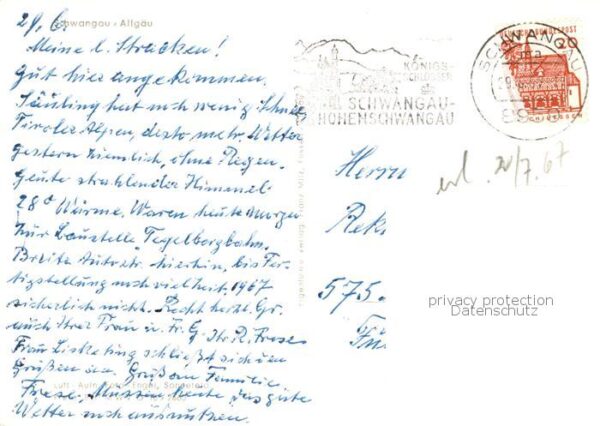 Schwangau - Allgäu
29.6.
Meine l. Stracken!
Gut hier angekommen.
Säuling hat noch wenig Schnee,
Tiroler Alpen, desto mehr. Wetter
gestern ziemlich, ohne Regen.
Heute strahlender Himmel
28° Wärme. Waren heute Morgen
zur Baustelle Tegelbergbahn.
Breite Autostr. hierhin, bis Fer-
tigstellung noch viel Zeit. 1967
sicherlich nicht. Recht herzl. Gr.
auch Ihrer Frau u. Ihr R. Frese
Frau schließt sich den
Grüßen an. Gruß an Familie
Frese. Müssen heute das gute
Wetter noch ausnutzen.
KÖNIGS-
SCHLÖSSER
SCHWANGAU-
HOHENSCHWANGAU
SCHWANGAU
DEUTSCHE BUNDESPOST
20
Herrn
Rek
575.
erl. 20/7.67
privacy protection
Datenschutz